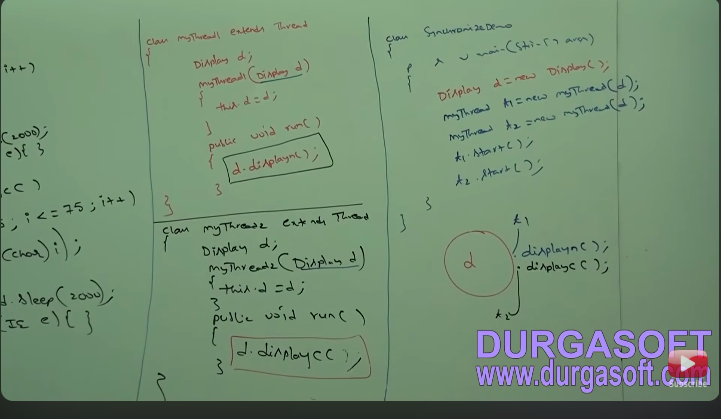 i++)
(2000);
e){ }
cC)
; i<=75; i++)
(char)i);
d.sleep(2000);
(IE e){ }
}
class myThread1 extends Thread
{
Display d;
myThread1(Display d)
{
this.d=d;
}
public void run()
{
d.displayn();
}
}
class myThread2 extends Thread
{
Display d;
myThread2(Display d)
{
this.d=d;
}
public void run()
{
d.displayc();
}
class SynchronizeDemo
{
{
Display d=new Display();
myThread t1=new myThread(d);
myThread t2=new myThread(d);
t1.start();
t2.start();
}
}
t1
d
displayn();
displayc();
t2
DURGASOFT
www.durgasoft.com
SUBSCRIBE